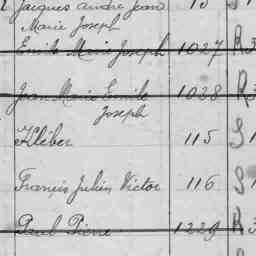 Jacques André Jean 15 S 1
Marie Joseph
Emile Marie Joseph 1027 R 3
Jean Marie Emile 1028 R 3
Joseph
Kléber 115 S 1
Francis Julien Victor 116 S 1
Paul Pierre 1229 R 3